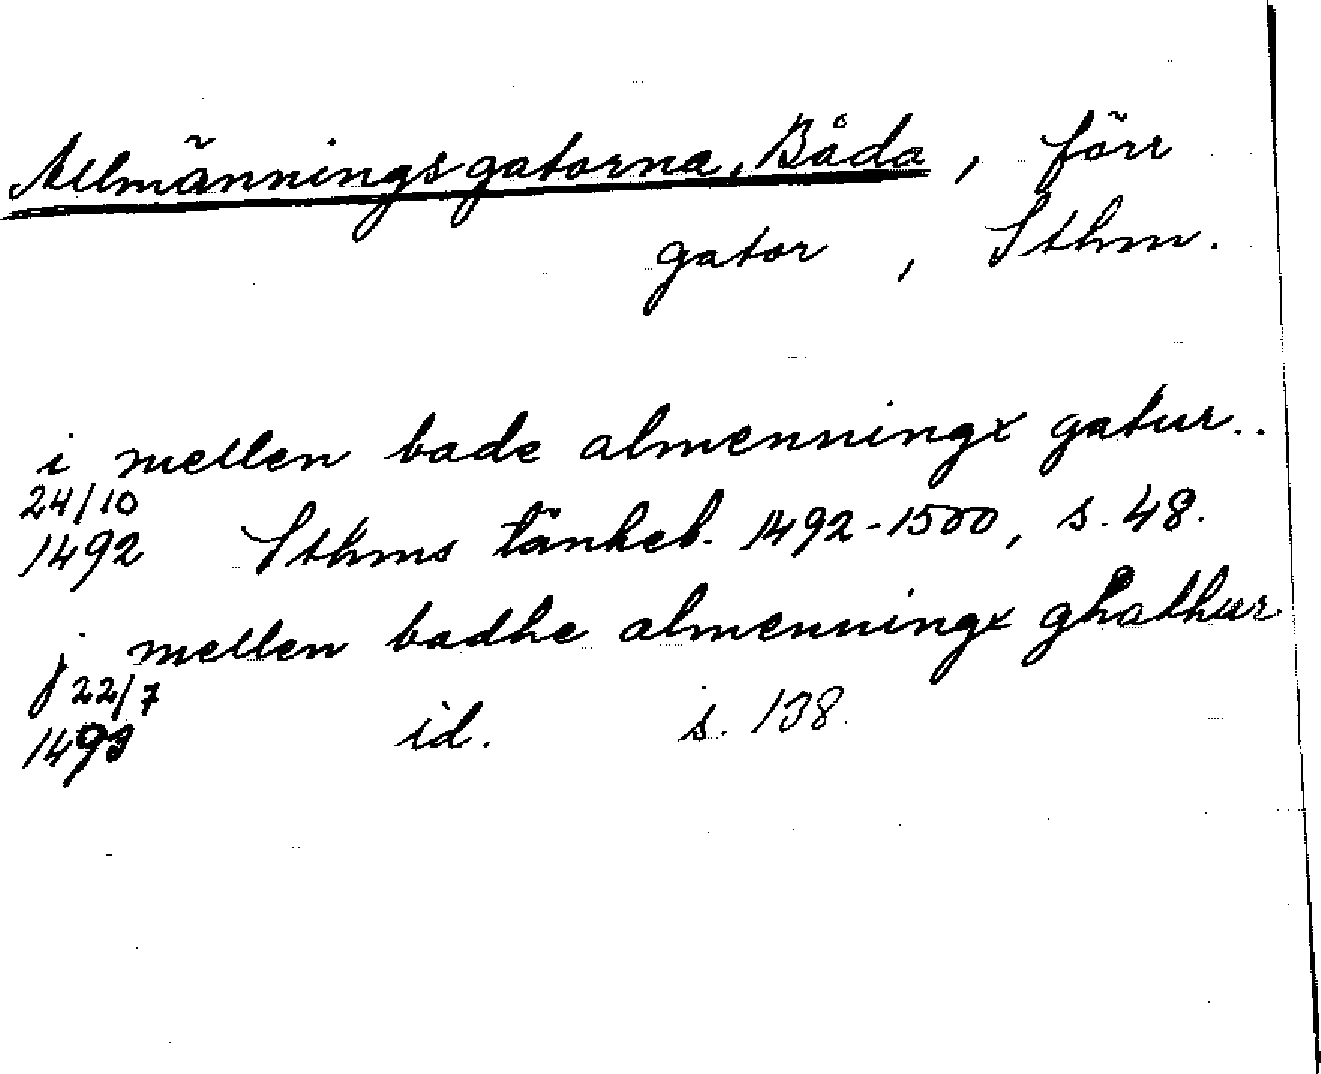 Allmänningsgatorna, Båda, förr
gator, Sthm.
i mellen bade almenningx gatur..
24/10
1492 Sthms tänkeb. 1492-1500, s. 48.
j mellen badhe almenningx ghathur
22/7
1493 id. s. 138.